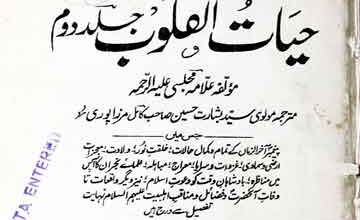 حیات القلوب جلد دوم
مؤلفہ علامہ مجلسی علیہ الرحمہ
مترجمہ مولوی سید بشارت حسین صاحب کامل مرزا پوری
جس میں
پیغمبر آخر الزماں کے تمام و کمال حالات؛ خلقت نور؛ ولادت؛ معجزات
ارضی و سماوی؛ غزوات و سرایا؛ معراج؛ مباہلہ؛ علمائے نجران کا آپس
میں مناظرہ؛ بادشاہان وقت کو دعوت اسلام؛ نیز دیگر واقعات تا
وفات آنحضرت و فضائل و مناقب اہلبیت علیہم السلام نہایت
تفصیل سے درج ہیں
TA ENTERED